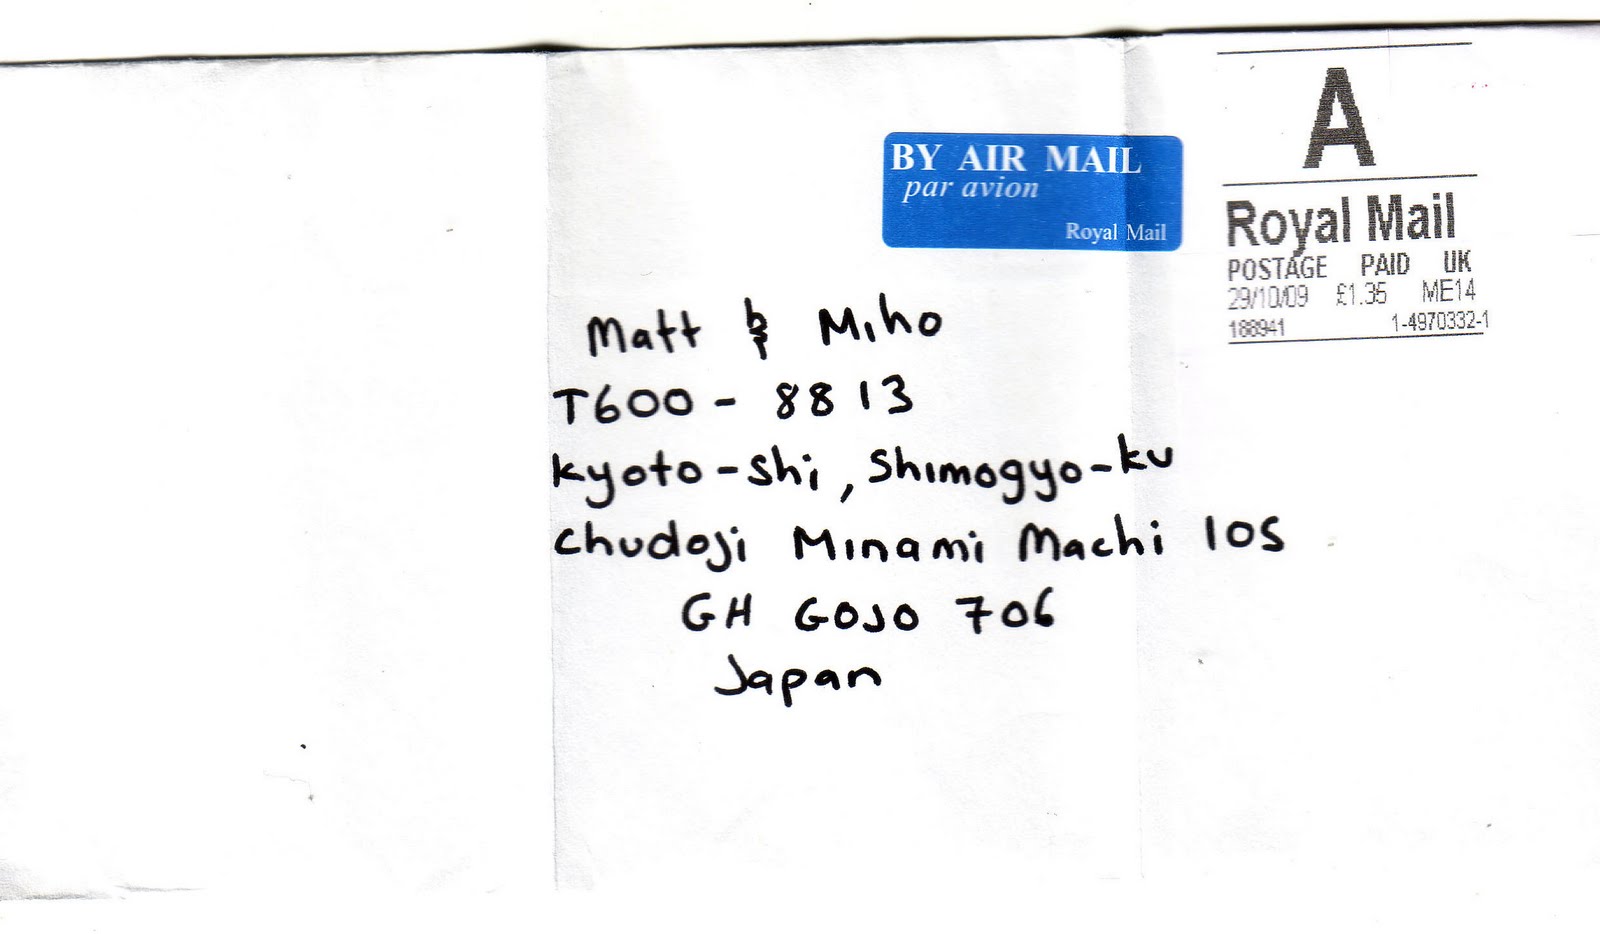 A
Royal Mail
POSTAGE PAID UK
29/10/09 £1.35 ME14
188941 1-4970332-1
BY AIR MAIL
par avion
Royal Mail
Matt & Miho
T600-8813
Kyoto-shi, Shimogyo-ku
Chudoji Minami Machi 105
GH GOJO 706
Japan